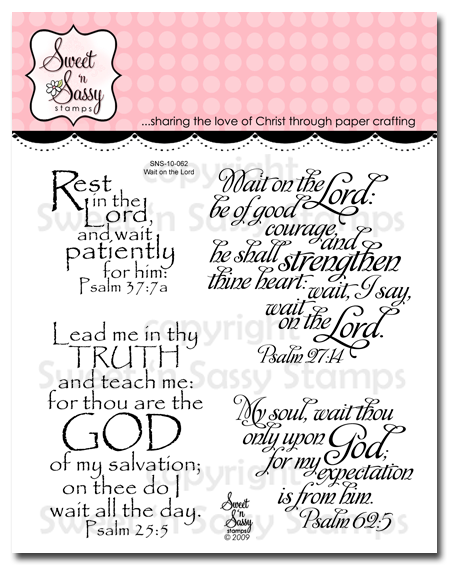 Sweet
'n
Sassy
stamps
...sharing the love of Christ through paper crafting
SNS-10-062
Wait on the Lord
Rest
in the
Lord,
and wait
patiently
for him:
Psalm 37:7a
Wait on the Lord:
be of good
courage, and
he shall strengthen
thine heart: wait, I say,
wait
on the Lord.
Psalm 27:14
Lead me in thy
TRUTH
and teach me:
for thou are the
GOD
of my salvation;
on thee do I
wait all the day.
Psalm 25:5
My soul, wait thou
only upon God;
for my expectation
is from him.
Psalm 62:5
Sweet
'n
Sassy
© 2009
copyright
Sweet 'n Sassy Stamps
copyright
Sweet 'n Sassy Stamps
copyright
Sweet 'n Sassy Stamps